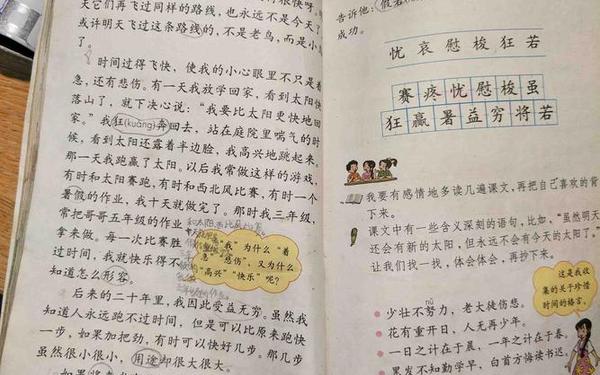 天它们再飞过同样的路线，也永远不是今天了
或许明天飞过这条路线的，不是老鸟，而是小
了。
时间过得飞快，使我的小心眼里不只是着
急，还有悲伤。有一天我放学回家，看到太阳快
落山了，就下决心说：“我要比太阳更快地回
家。”我狂(kuáng)奔回去，站在庭院里喘气的时
候，看到太阳还露着半边脸，我高兴地跳起来，
那一天我跑赢了太阳。以后我常做这样的游戏，
有时和太阳赛跑，有时和西北风比赛，有时一个
暑假的作业，我十天就做完了。那时我三年级，
常把哥哥五年级的作业
拿来做。每一次比赛胜
过时间，我就快乐得不
知道怎么形容。
“我”为什么“着
急”“悲伤”，又为什么
“高兴”“快乐”呢？
后来的二十年里，我因此受益无穷。虽然我
知道人永远跑不过时间，但是可以比原来跑快
一步，如果加把劲，有时可以快好几步。那几步
虽然很小很小，用途却很大很大。
告诉他：假若
成功。
忧 哀 慰 梭 狂 若
赛 疼 忧 慰 梭 虽
狂 赢 暑 益 穷 将 若
我要有感情地多读几遍课文，再把自己喜欢的背
下来。
课文中有一些含义深刻的语句，比如，“虽然明天
还会有新的太阳，但永远不会有今天的太阳了。”
让我们找一找，体会体会，再抄下来。
这是我收
集的关于珍惜
时间的格言。
nǔ
少壮不努力，老大徒伤悲。
花有重开日，人无再少年。
一日之计在于晨，一年之计在于春。
黑发不知勤学早，白首方悔读书迟。